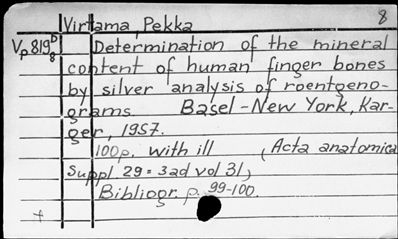 8
Virtama, Pekka
Vp819 D Determination of the mineral
8
content of human finger bones
by silver analysis of roentgeno-
grams. Basel-New York, Kar-
ger, 1957.
100p. with ill (Acta anatomica
Suppl. 29 = 3 ad vol 31)
Bibliogr. p. 99-100.
+